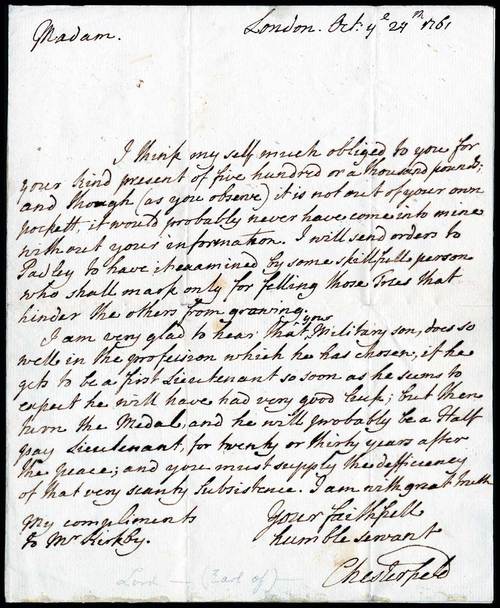 London. Oct: yᵉ 24ᵗʰ 1761
Madam.
I think my self much obliged to you for
your kind present of five hundred or a thousand pounds;
and though (as you observe) it is not out of your own
pockett, it would probably never have come into mine
without your information. I will send orders to
Padley to have it examined by some skillfull person
who shall mark only for felling those Trees that
hinder the others from growing.
I am very glad to hear that your Military son, does so
well in the profession which he has chosen, if he
gets to be a first Lieutenant so soon as he seems to
expect he will have had very good luck; but then
turn the Medal, and he will probably be a Half
pay Lieutenant, for twenty or thirty years after
the peace; and you must supply the defficiency
of that very scanty Subsistence. I am with great truth
My compliments
to Mr Kirkby.
Your faithfull
humble servant
Chesterfield
Lord — (Earl of) —